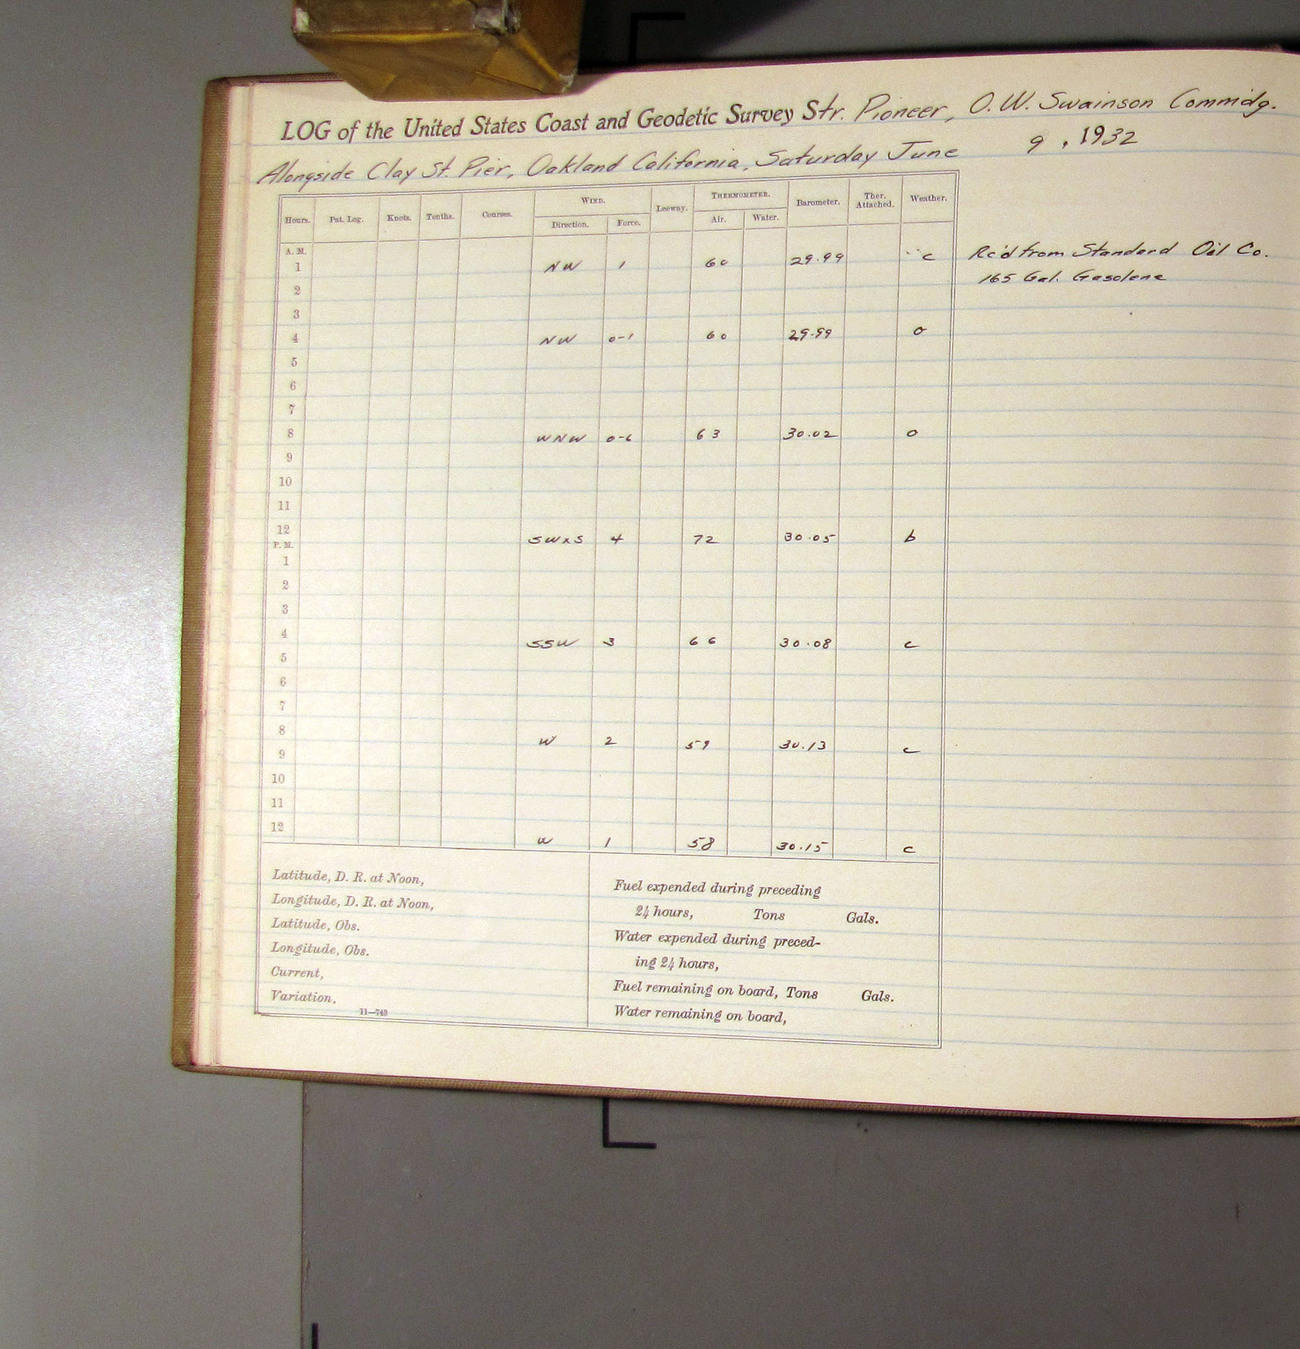 LOG of the United States Coast and Geodetic Survey Str. Pioneer, O.W. Swainson Commdg.
Alongside Clay St. Pier, Oakland California, Saturday June 9, 1932
Hours. Pat. Log. Knots. Tenths. Courses. WIND. Leeway. THERMOMETER. Barometer. Ther. Attached. Weather.
Direction. Force. Air. Water.
A. M.
1 NW 1 60 29.99 c Rc'd from Standard Oil Co.
2 165 Gal. Gasolene
3
4 NW 0-1 60 29.99 o
5
6
7
8 WNW 63 30.02 o
9
10
11
12 SWxS 4 72 30.05 b
P. M.
1
2
3
4 SSW 3 66 30.08 c
5
6
7
8 W 2 59 30.13 c
9
10
11
12 W 1 58 30.15 c
Latitude, D. R. at Noon,
Longitude, D. R. at Noon,
Latitude, Obs.
Longitude, Obs.
Current,
Variation.
11—743
Fuel expended during preceding
24 hours, Tons Gals.
Water expended during preced-
ing 24 hours,
Fuel remaining on board, Tons Gals.
Water remaining on board,